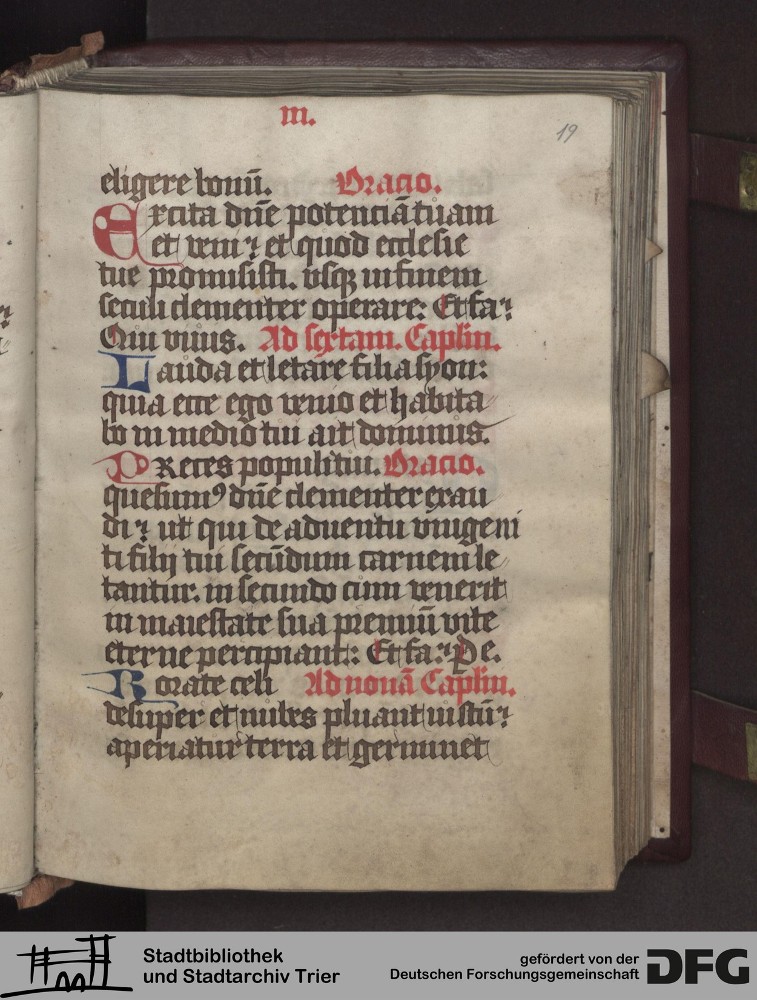 m.
19
eligere bonū. Oracio.
Excita dn̄e potenciā tuam
et veni ⁊ et quod ecclesie
tue promisisti. vsqꝫ in finem
seculi clementer operare: Et fa⁊
Qui viuis. Ad sextam. Caplm.
Lauda et letare filia syon:
quia ecce ego venio et habita
bo in medio tui ait dominus.
Preces populi tui. Oracio.
quesumꝰ dn̄e clementer exau
di ⁊ ut qui de aduentu vnigeni
ti filij tui secūdum carnem le
tantur. in secundo cum venerit
in maiestate sua premiū vite
eterne percipiant: Et fa⁊ Pe.
Rorate celi Ad nonā Caplm.
desuper et nubes pluant iustū⁊
aperiatur terra et germinet
Stadtbibliothek
und Stadtarchiv Trier
gefördert von der
Deutschen Forschungsgemeinschaft
DFG